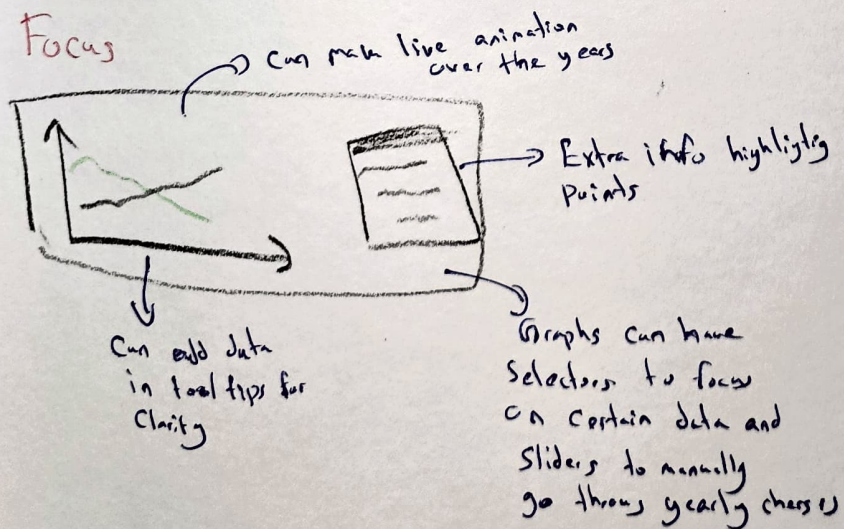 Focus
Can make live animation
over the years
Extra info highligtig
points
Can add data
in tool tips for
Clarity
Graphs can have
Selectors to focus
on certain data and
Sliders to manually
go throus yearly charses